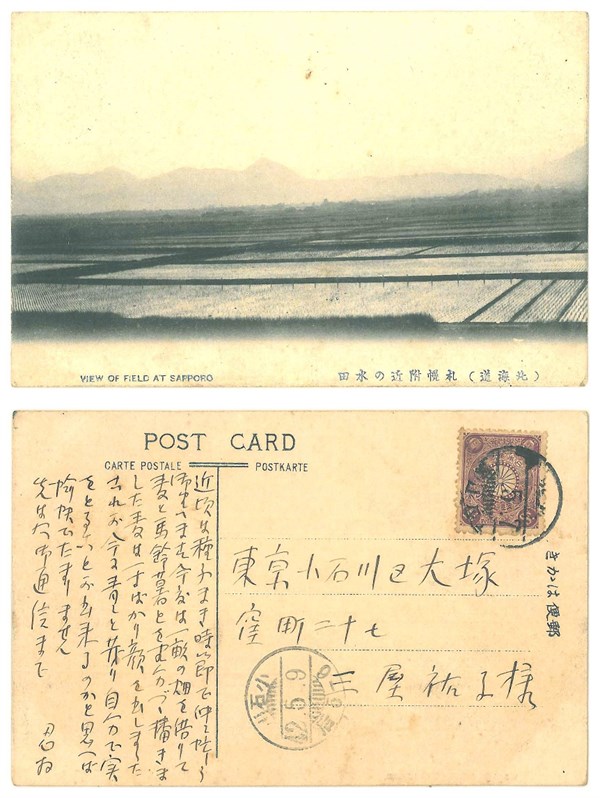 VIEW OF FIELD AT SAPPORO
（北海道）札幌附近の水田
POST CARD
CARTE POSTALE
POSTKARTE
きかは便郵
東京小石川区大塚
窪町二十七
三屋祐子様
小石川
42 5 9
近頃は種子まき時節で仲々忙しう
一畝の畑を借りて
麦と馬鈴薯とを播きま
した麦は一寸ばかり顔を出しました
これが今に青々と茂り自分で実
をとることが出来るのかと思へば
愉快でたまりません
先は右御通信まで